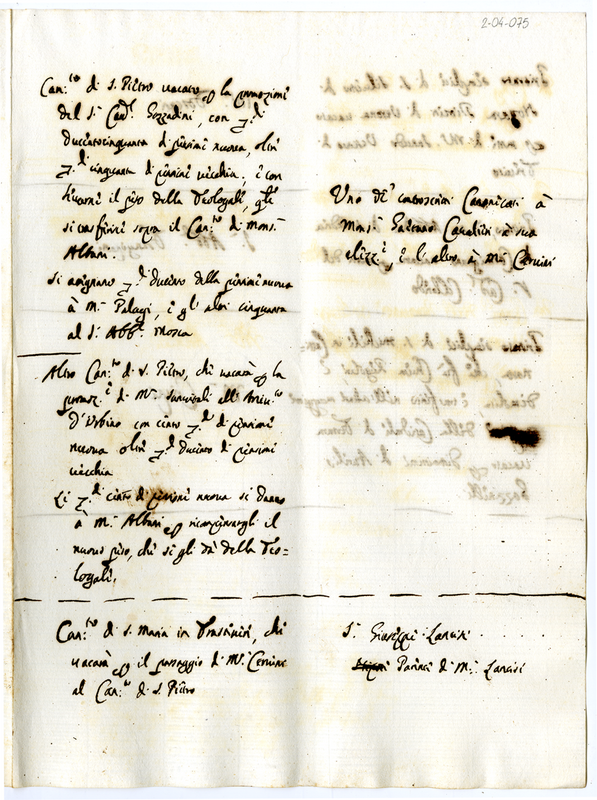 2-04-075
Can.to di S. Pietro vacato p la promozione
del S.r Card. Gozzadini, con ▽.di
Duecentocinquanta di pensione nuova, oltre
▽.di cinquanta di pensione vecchia, e con
il peso della Teologale, che
si conferisce sopra il Can.to di Mons.r
Albani.
Si assegnano ▽.di duecento della pensione nuova
à M.r Palagi, e gl'altri cinquanta
al S.r Abb.e Mosca
Altro Can.to di S. Pietro, che vacarà p la
promoz.e di M.r all'
D'Urbino con cento ▽.di di pensione
nuova oltre ▽.di duecento di pensione
vecchia
Li ▽.di cento di pensione nuova si danno
à M.r Albani p ricompensargli il
nuovo peso, che se gli dà della Teo=
logale.
Can.to di S. Maria in Trastevere, che
vacarà p il passaggio di M.r
al Can.to di S. Pietro
Uno de' Canonicati à
Mons.r Gaetano à sua
elez.e, e l'altro à M.r
S.r Giuseppe Lancisi
Parente di M.r Lancisi